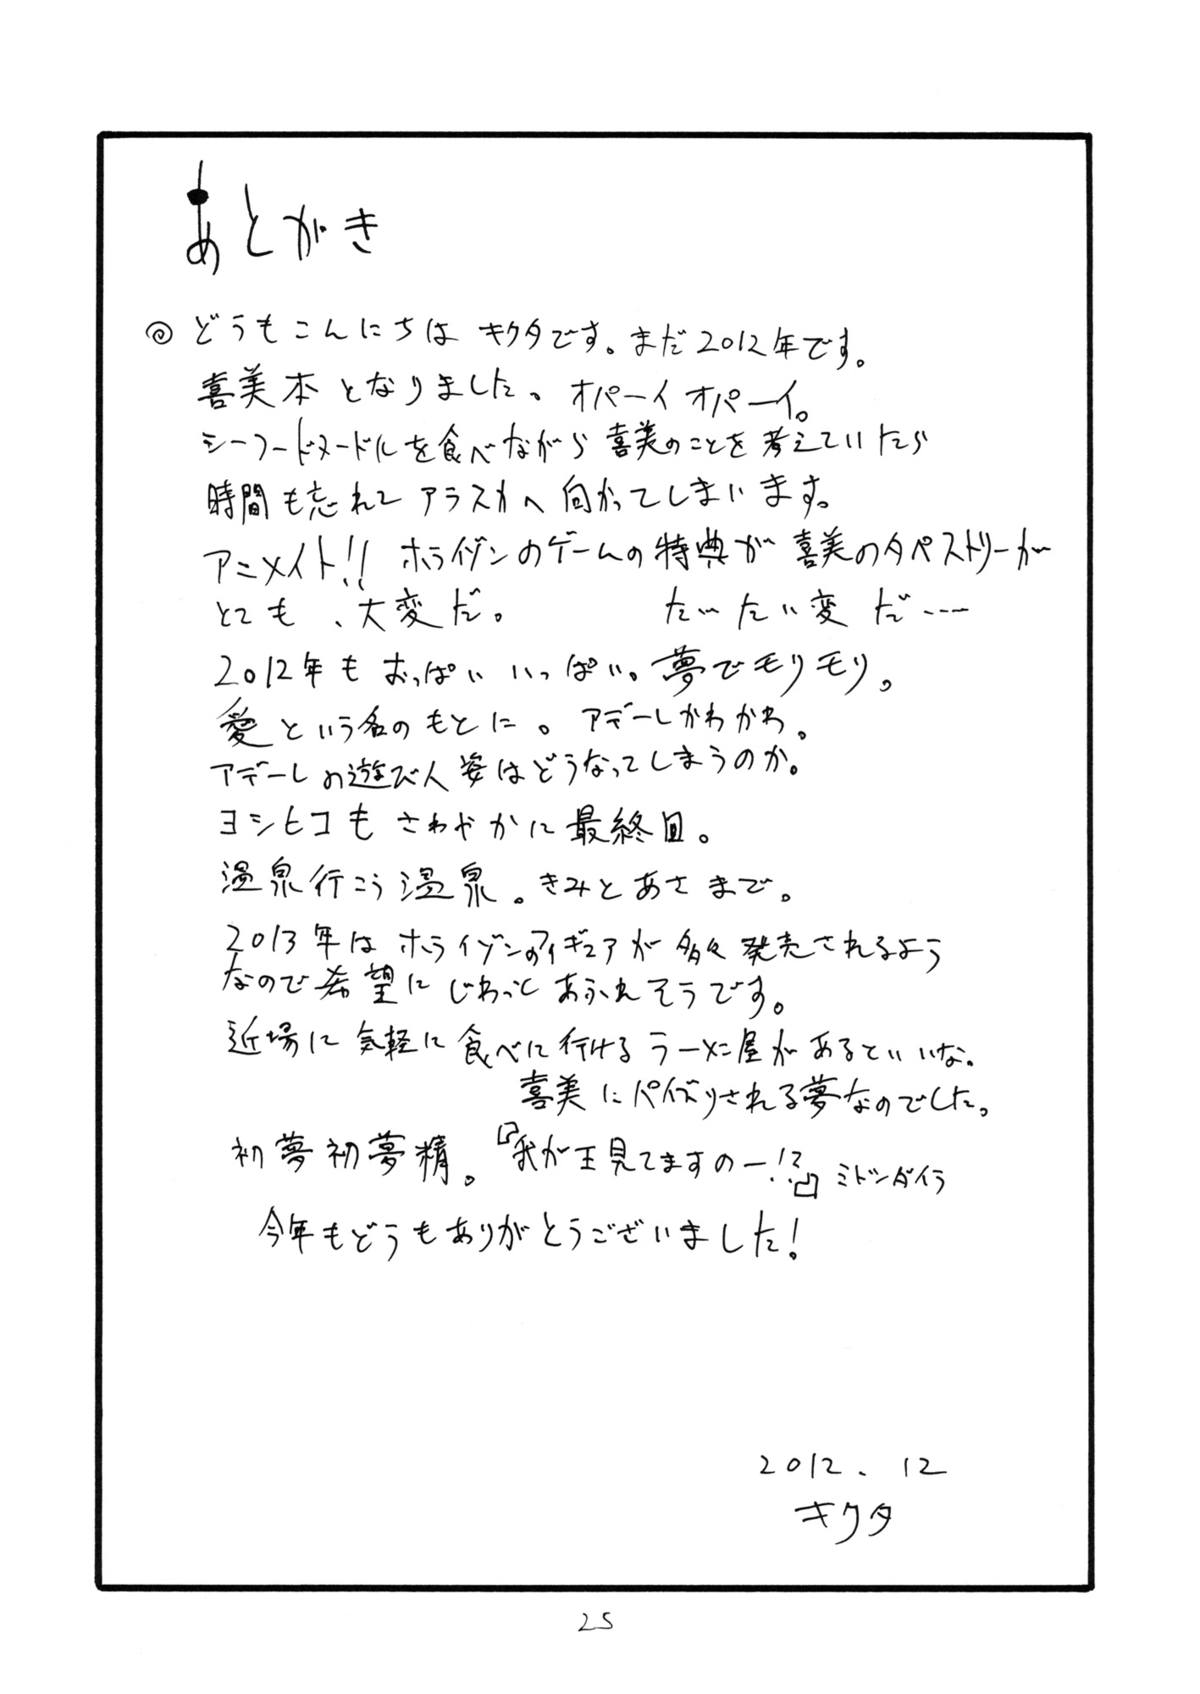 あとがき
◎どうもこんにちは キクタです。まだ2012年です。
喜美本となりました。オパーイオパーイ。
シーフードヌードルを食べながら喜美のことを考えていたら
時間も忘れてアラスカへ向かってしまいます。
アニメイト!! ホライゾンのゲームの特典が喜美のタペストリーが
とても、大変だ。 だいたい変だ----
2012年もおっぱいいっぱい。夢でモリモリ。
愛という名のもとに。アデーレかわかわ。
アデーレの遊び人姿はどうなってしまうのか。
ヨシヒコもさわやかに最終回。
温泉行こう温泉。きみとあさまで。
2013年はホライゾンのフィギュアが多々発売されるよう
なので希望にじわっとあふれそうです。
近場に気軽に食べに行けるラーメン屋があるといいな。
喜美にパイズリされる夢なのでした。
初夢初夢精。『我が王見てますのー!?』ミトツダイラ
今年もどうもありがとうございました!
2012.12
キクタ
25